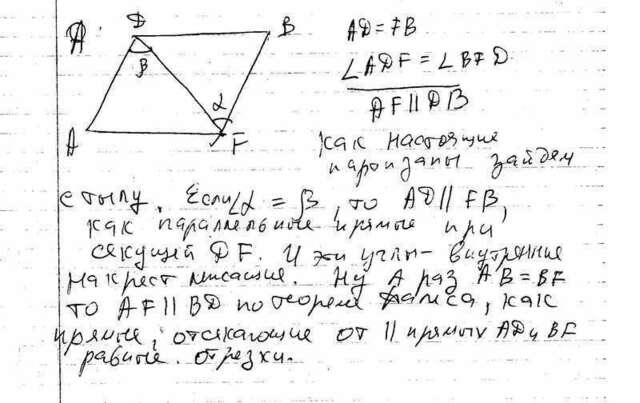 D B
A F
β α
AD = FB
∠ADF = ∠BFD
AF || DB
как настоящие
партизаны зайдём
с тылу. Если ∠α = β, то AD || FB,
как параллельные прямые при
секущей DF. И эти углы - внутренние
накрест лежащие. Ну А раз AB = BF
то AF || BD по теореме Фалеса, как
прямые, отсекающие от || прямых AD и BF
равные отрезки.